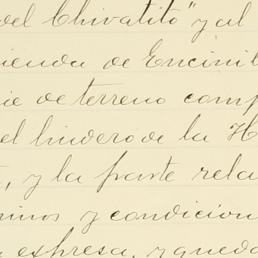 del Chivatito" y al
ienda de Encinil
ie de terreno comp
el lindero de la H
, y la parte rela
minos y condicion
expresa, y queda